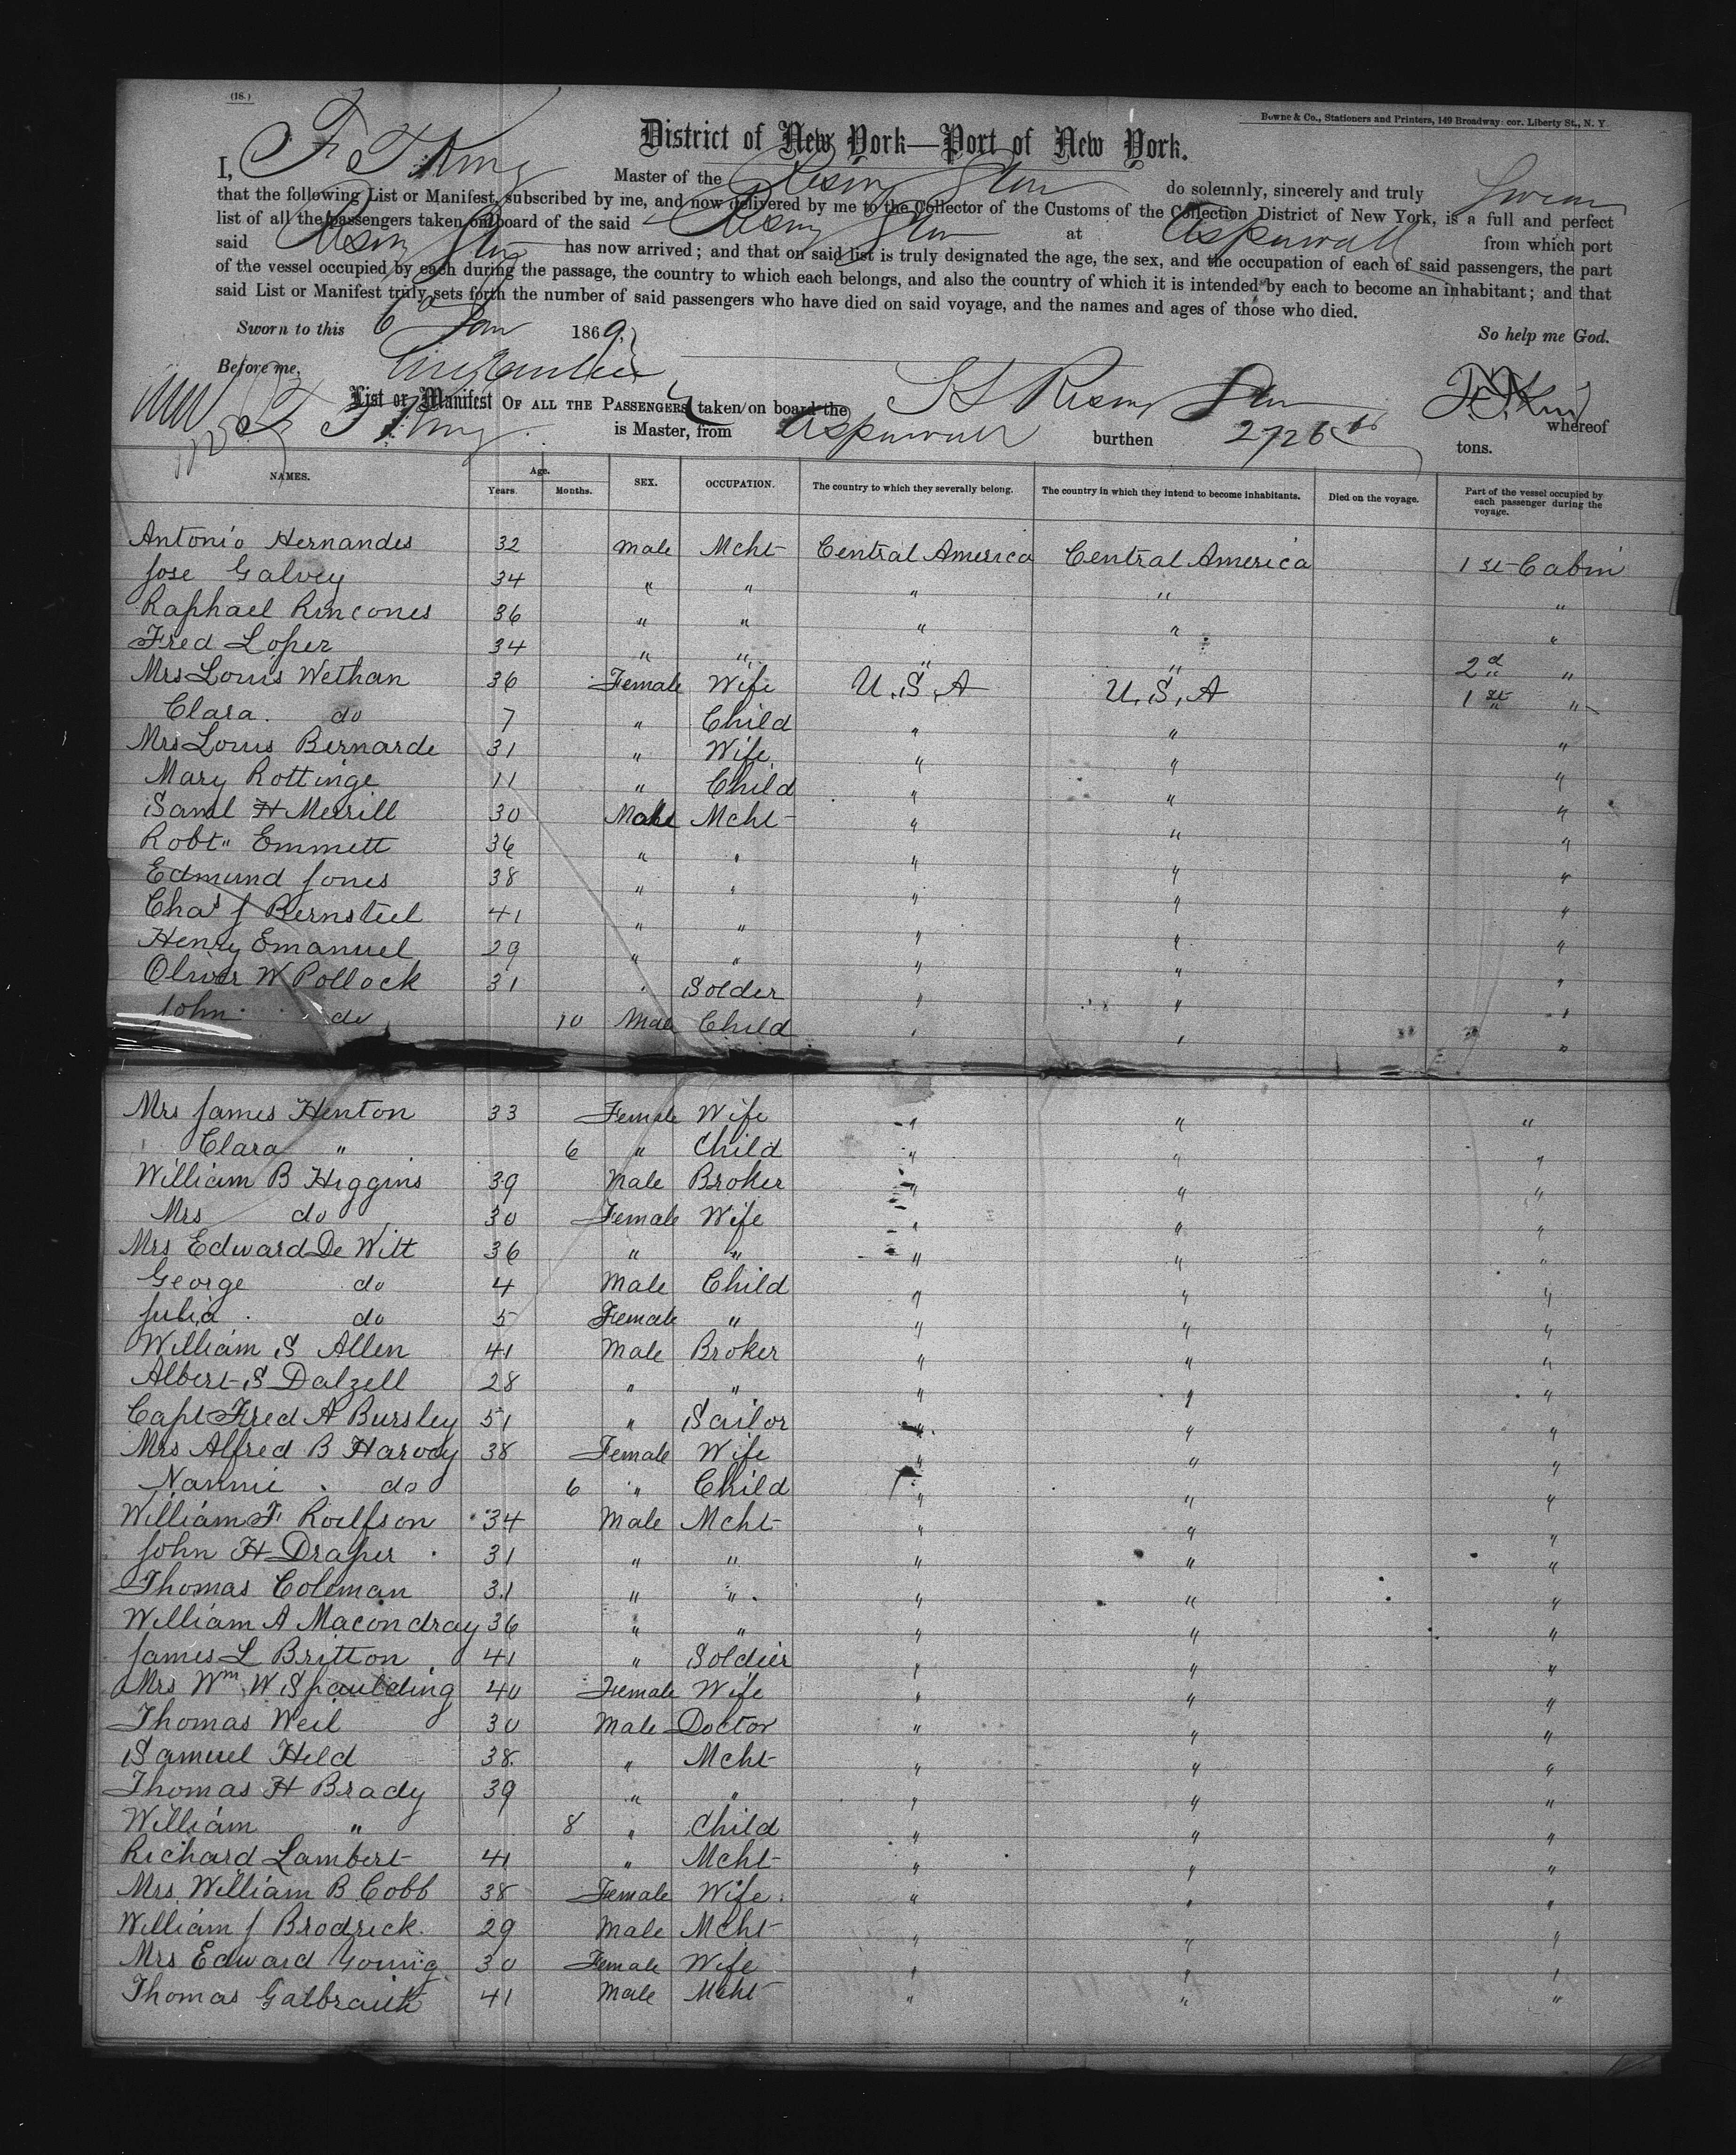 (18.)
Bowne & Co., Stationers and Printers, 149 Broadway cor. Liberty St., N. Y.
District of New York—Port of New York.
I, F T King Master of the Rising Star do solemnly, sincerely and truly Swear
that the following List or Manifest, subscribed by me, and now delivered by me to the Collector of the Customs of the Collection District of New York, is a full and perfect
list of all the passengers taken on board of the said Rising Star at Aspinwall from which port
said Rising Star has now arrived; and that on said list is truly designated the age, the sex, and the occupation of each of said passengers, the part
of the vessel occupied by each during the passage, the country to which each belongs, and also the country of which it is intended by each to become an inhabitant; and that
said List or Manifest truly sets forth the number of said passengers who have died on said voyage, and the names and ages of those who died.
Sworn to this 6 Jan 1869. So help me God.
Before me,
List or Manifest OF ALL THE PASSENGERS taken on board the SS Rising Star whereof
F T King is Master, from Aspinwall burthen 2726 tons.
NAMES. Age. Years. Months. SEX. OCCUPATION. The country to which they severally belong. The country in which they intend to become inhabitants. Died on the voyage. Part of the vessel occupied by each passenger during the voyage.
Antonio Hernandes 32 Male Mcht Central America Central America 1st Cabin
Jose Galvey 34 " " " " "
Raphael Rincones 36 " " " " "
Fred Loper 34 " " " " 2d "
Mrs Louis Wethan 36 Female Wife U.S.A U.S.A 1st "
Clara do 7 " Child " " "
Mrs Louis Bernarde 31 " Wife " " "
Mary Rottinge 11 " Child " " "
Saml H Merrill 30 Male Mcht " " "
Robt" Emmett 36 " " " " "
Edmund Jones 38 " " " " "
Chas J Bernsteel 41 " " " " "
Henry Emanuel 29 " " " " "
Oliver W Pollock 31 " Solder " " "
John do 10 Male Child " " "
Mrs James Henton 33 Female Wife " " "
Clara " 6 " Child " " "
William B Higgins 39 Male Broker " " "
Mrs do 30 Female Wife " " "
Mrs Edward De Witt 36 " " " " "
George do 4 Male Child " " "
Julia do 5 Female " " " "
William S Allen 41 Male Broker " " "
Albert S Dalzell 28 " " " " "
Capt Fred A Bursley 51 " Sailor " " "
Mrs Alfred B Harvey 38 Female Wife " " "
Nannie do 6 " Child " " "
William F Roelfson 34 Male Mcht " " "
John H Draper 31 " " " " "
Thomas Coleman 31 " " " " "
William A Macondray 36 " " " " "
James L Britton 41 " Soldier " " "
Mrs Wm W Spaulding 40 Female Wife " " "
Thomas Weil 30 Male Doctor " " "
Samuel Held 38 " Mcht " " "
Thomas H Brady 39 " " " " "
William " 8 " Child " " "
Richard Lambert 41 " Mcht " " "
Mrs William B Cobb 38 Female Wife " " "
William J Brodrick 29 Male Mcht " " "
Mrs Edward Young 30 Female Wife " " "
Thomas Galbraith 41 Male Mcht " " "